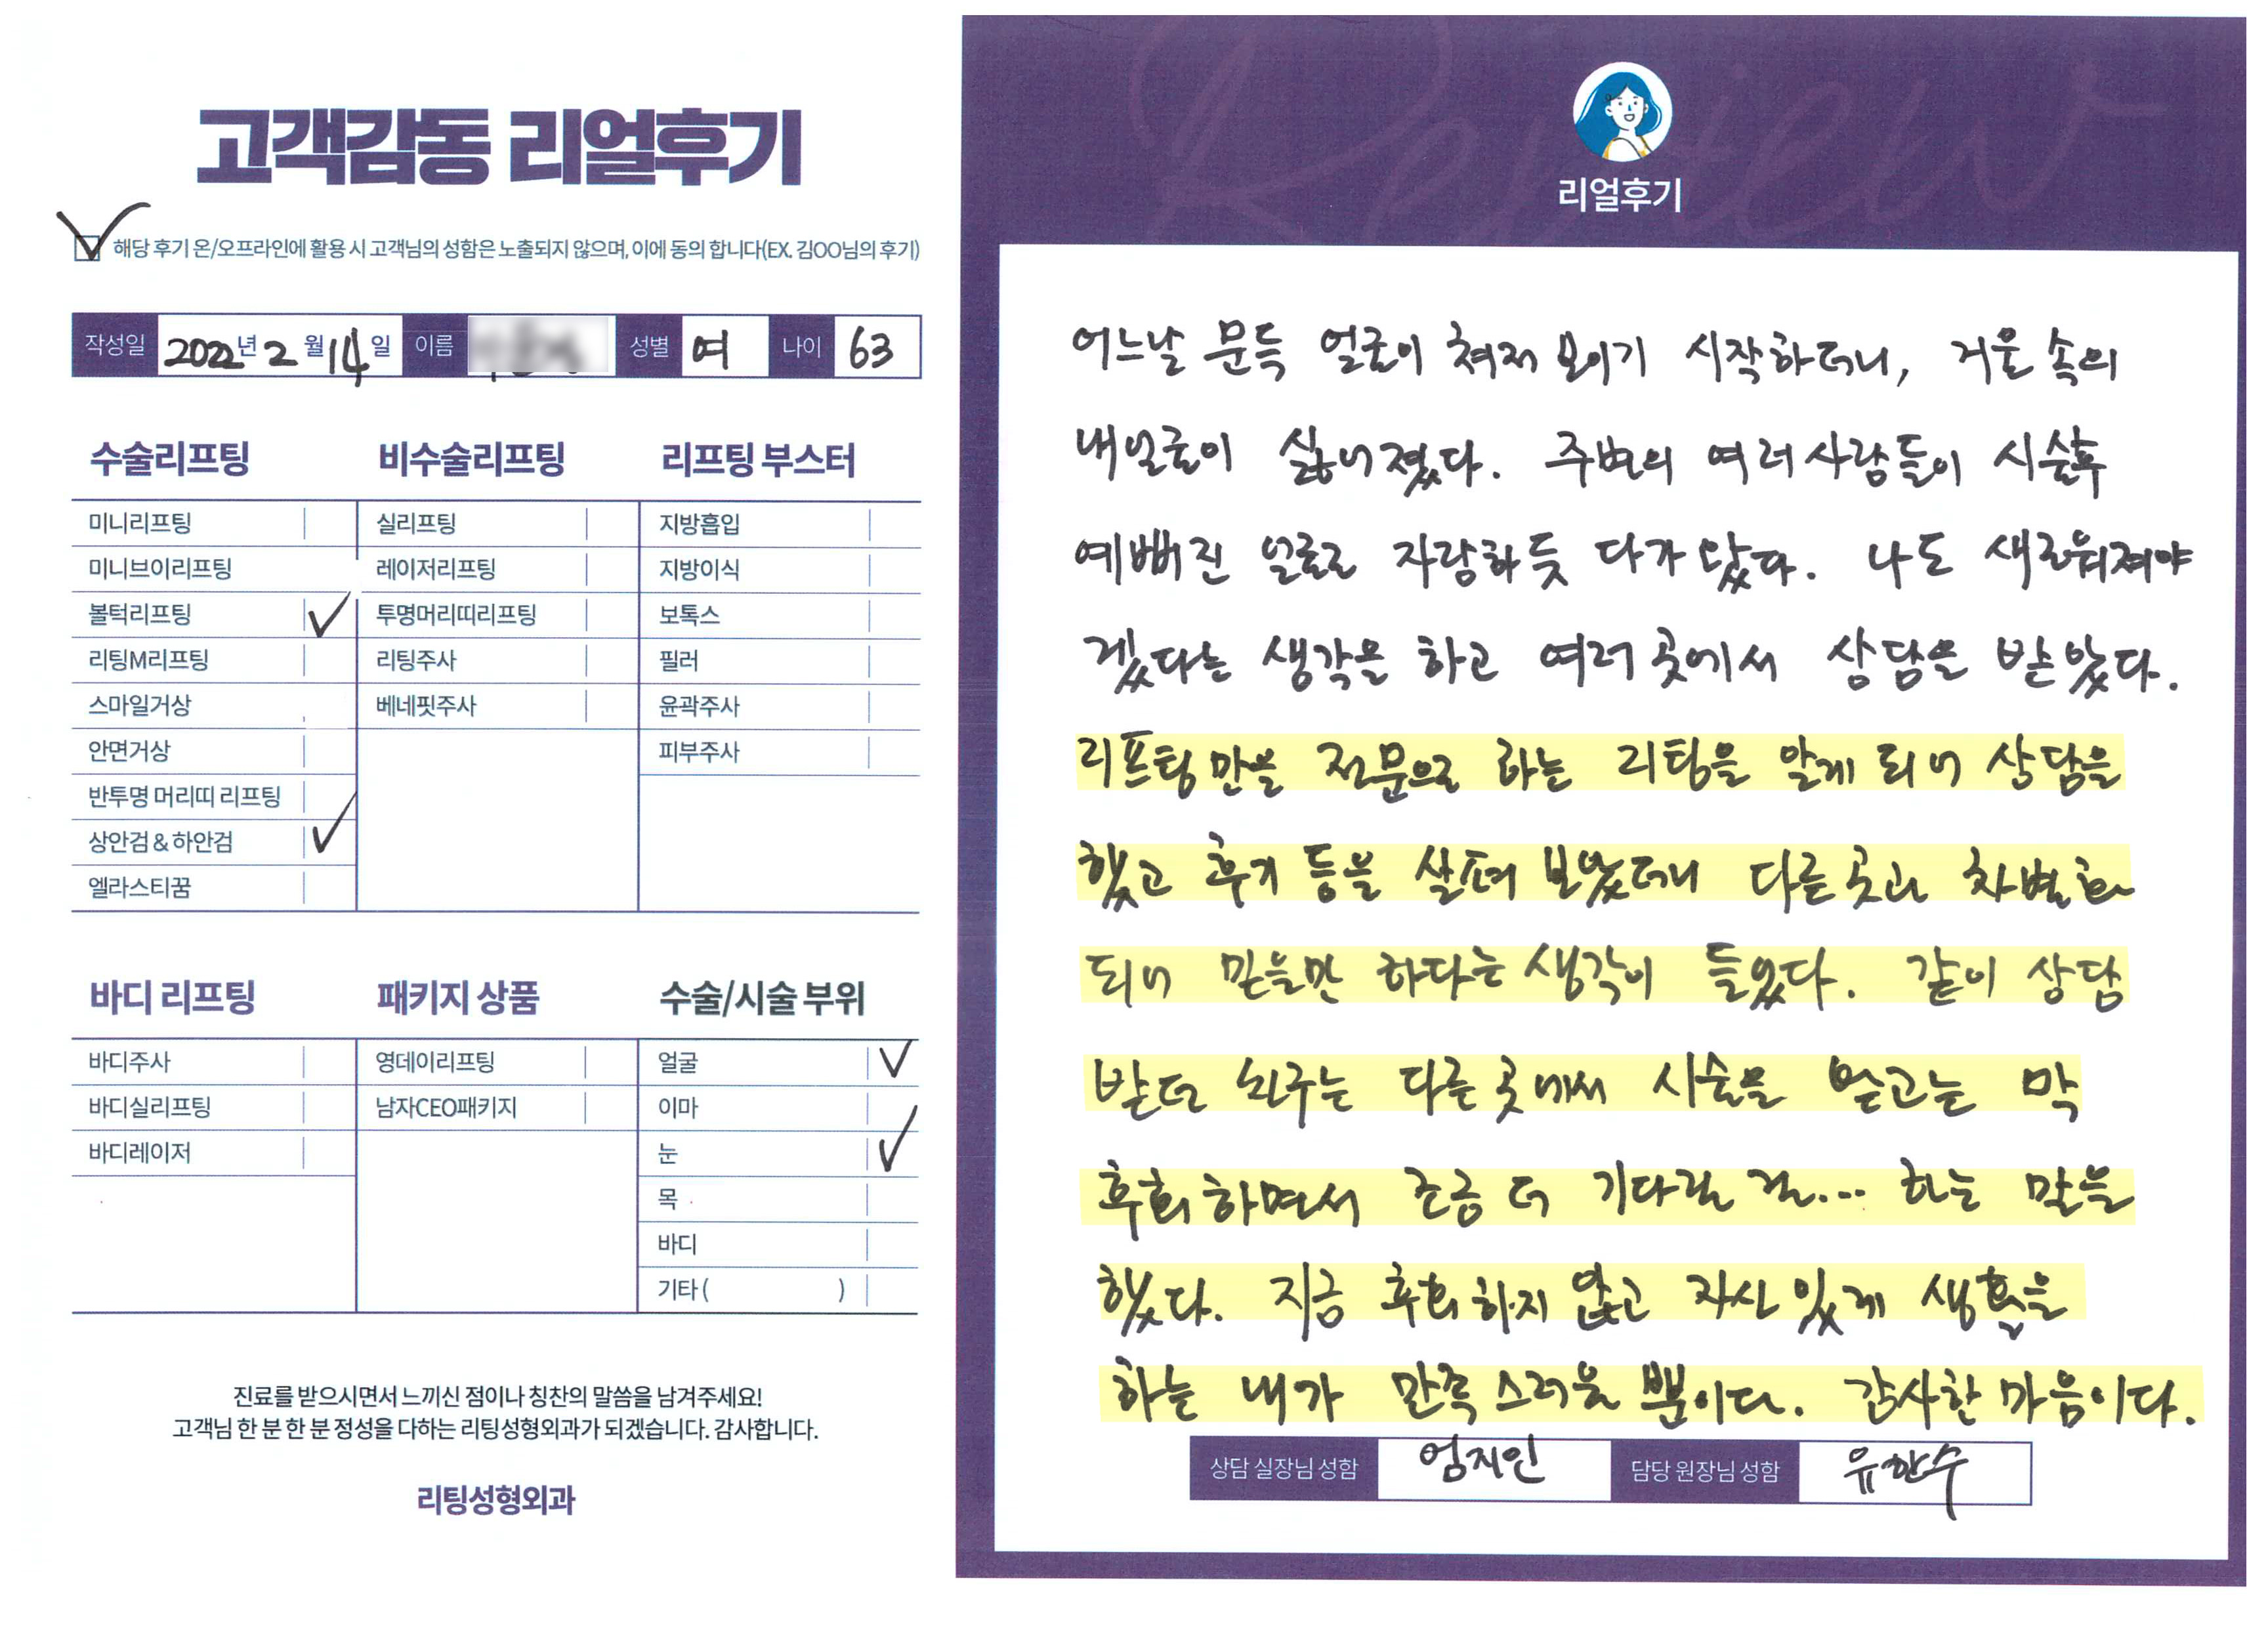 고객감동 리얼후기
해당 후기 온/오프라인에 활용 시 고객님의 성함은 노출되지 않으며, 이에 동의 합니다(EX. 김OO님의 후기)
작성일 2022년 2월 14일 이름 성별 여 나이 63
수술리프팅
미니리프팅
미니브이리프팅
볼턱리프팅
리팅M리프팅
스마일거상
안면거상
반투명 머리띠 리프팅
상안검 & 하안검
엘라스티꿈
비수술리프팅
실리프팅
레이저리프팅
투명머리띠리프팅
리팅주사
베네핏주사
리프팅 부스터
지방흡입
지방이식
보톡스
필러
윤곽주사
피부주사
바디 리프팅
바디주사
바디실리프팅
바디레이저
패키지 상품
영데이리프팅
남자CEO패키지
수술/시술 부위
얼굴
이마
눈
목
바디
기타 ( )
진료를 받으시면서 느끼신 점이나 칭찬의 말씀을 남겨주세요!
고객님 한 분 한 분 정성을 다하는 리팅성형외과가 되겠습니다. 감사합니다.
리팅성형외과
Review
리얼후기
어느날 문득 얼굴이 쳐져 보이기 시작하더니, 거울 속의
내얼굴이 싫어졌다. 주변의 여러사람들이 시술후
예뻐진 얼굴로 자랑하듯 다가 왔다. 나도 새로워져야
겠다는 생각을 하고 여러곳에서 상담을 받았다.
리프팅만을 전문으로 하는 리팅을 알게 되어 상담을
했고 후기 등을 살펴 보았더니 다른곳과 차별화
되어 믿을만 하다는 생각이 들었다. 같이 상담
받던 친구는 다른 곳에서 시술을 받고는 막
후회하면서 조금 더 기다릴 걸... 하는 말을
했다. 지금 후회하지 않고 자신 있게 생활을
하는 내가 만족스러울 뿐이다. 감사한 마음이다.
상담 실장님 성함 엄지인 담당 원장님 성함 유한수